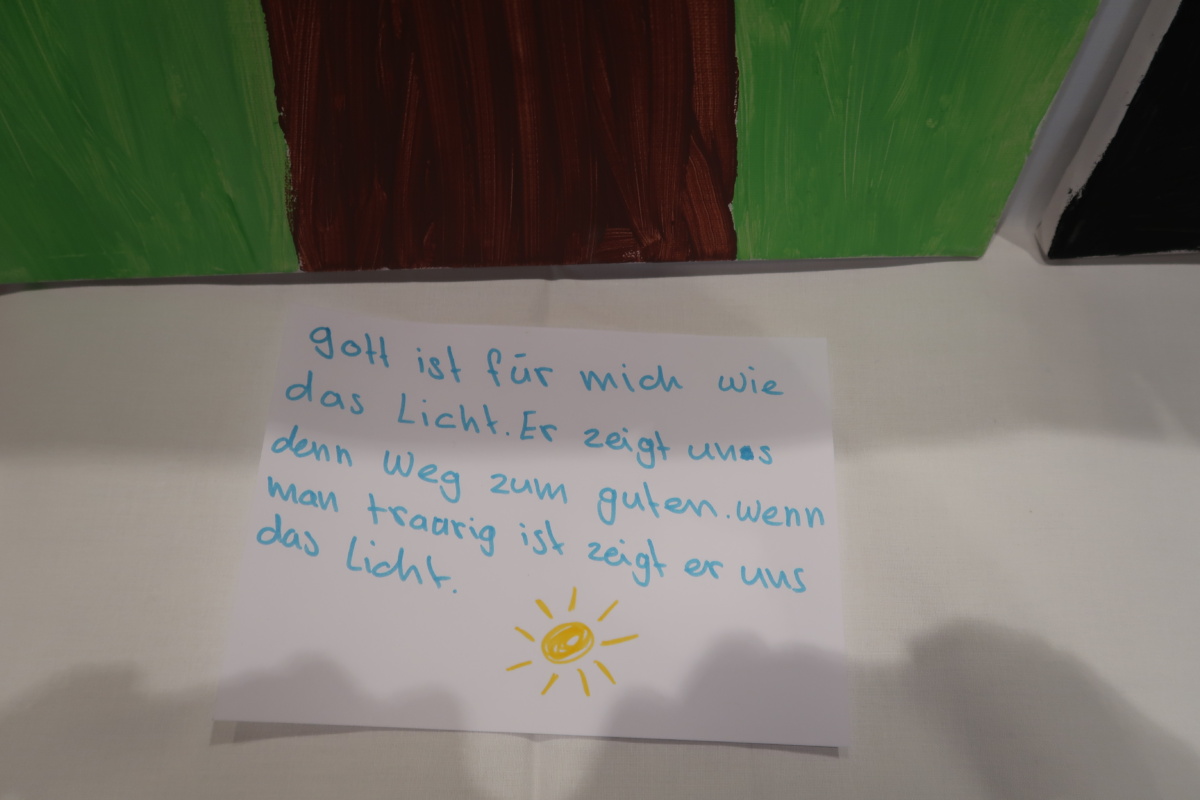 gott ist für mich wie
das Licht. Er zeigt uns
denn Weg zum guten. wenn
man traarig ist zeigt er uns
das Licht.